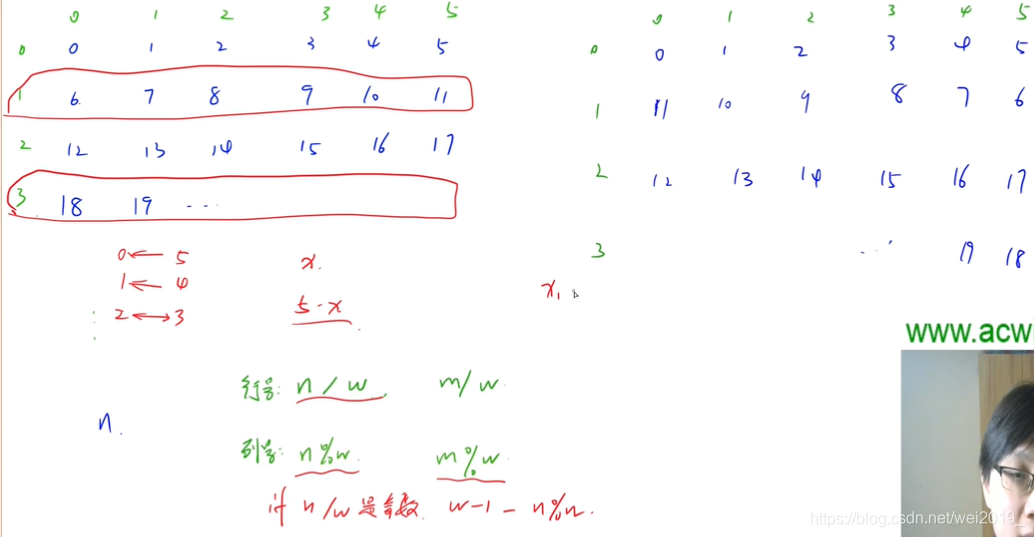 0 1 2 3 4 5
0 0 1 2 3 4 5
1 6 7 8 9 10 11
2 12 13 14 15 16 17
3 18 19 ...
0 ← 5
1 ← 4
2 ↔ 3
x
5-x
0 1 2 3 4 5
0 0 1 2 3 4 5
1 11 10 9 8 7 6
2 12 13 14 15 16 17
3 ... 19 18
x1
n.
行号: n/w m/w
列号: n%w m%w
if n/w是奇数 w-1-n%w.
www.acw
https://blog.csdn.net/wei2019_